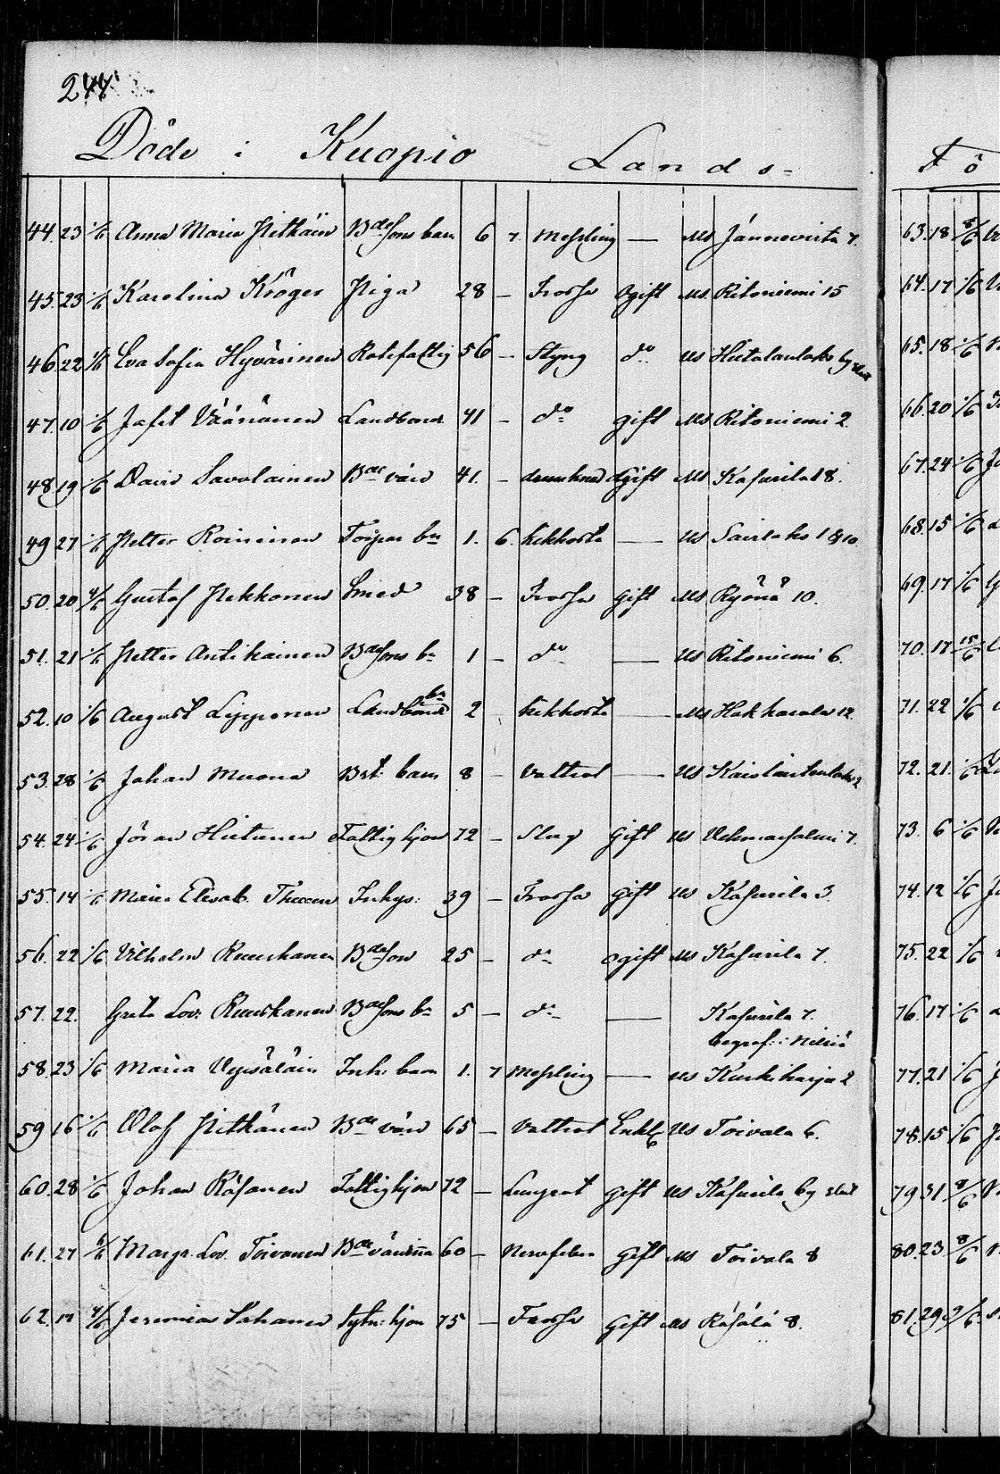 244
Döde i Kuopio Lands-
44. 23 1/6 Anna Maria Pitkäin Bdesons barn 6 7. Messling — Ms Jännevirta 7.
45. 23 1/6 Karolina Kröger Piga 28 — Frossa Ogift Ms Ritoniemi 15
46. 22 1/6 Eva Sofia Hyvärinen Rotefattig 56 — Styng do Ms Hietalanlaks by
47. 10 1/6 Jafet Väänänen Landbonde 41 — do gift Ms Ritoniemi 2
48. 19 1/6 David Savolainen Bde 41. — Ms Kasurila 18.
49 27 1/6 Petter Roininen bn 1. 6. kikhosta — Ms 1 & 10
50. 20 4/6 Gustaf Pekkonen Smed 38 — Frossa gift Ms Ryönä 10.
51. 21 1/6 Petter Antikainen Bdesons bn 1 — do — Ms Ritoniemi 6.
52. 10 1/6 August Lipponen Landbonde bn 2 — kikhosta — Ms Hakkarala 12
53. 28 1/6 Johan Muona barn 8 — Vattsot — Ms
54. 24 1/6 Jöran Hietanen Fattighjon 72 — Slag Gift Ms Vehmasalmi 7.
55. 14 1/6 Maria Elisab. Inhys: 39 — Frossa Gift Ms Kasurila 3.
56. 22 1/6 Vilhelm Ruuskanen Bdeson 25 — do ogift Ms Kasurila 7.
57. 22. Greta Lov. Ruuskanen Bdesons bn 5 — do — Kasurila 7.
begraf: i Nilsiä
58. 23 1/6 Maria Inh: barn 1. 7 Messling — Ms Kurkiharju 2
59 16 1/6 Olof Pitkänen Bde 65 — Vattsot Enkl Ms Toivala 6.
60. 28 1/6 Johan Räsänen Fattighjon 72 — Lungsot gift Ms Kasurila by
61. 27 6/6 Margr. Lov. Toivanen Bde värdinna 60 — Nervfeber Gift Ms Toivala 8
62. 4/6 Jeremias Sahanen hjon 75 — Frossa Gift Ms Räsälä 8.
Fö
63. 18
64. 17 1/6
65. 18 1/6
66. 20 1/6
67. 24 1/6
68. 15 1/6
69. 17 1/6
70. 17 15/6
71. 22 1/6
72. 21. 1/6
73. 6 1/6
74. 12 1/6
75. 22 1/6
76. 17 1/6
77. 21 1/6
78. 15 1/6
79 31 8/6
80. 23. 8/6
81. 29